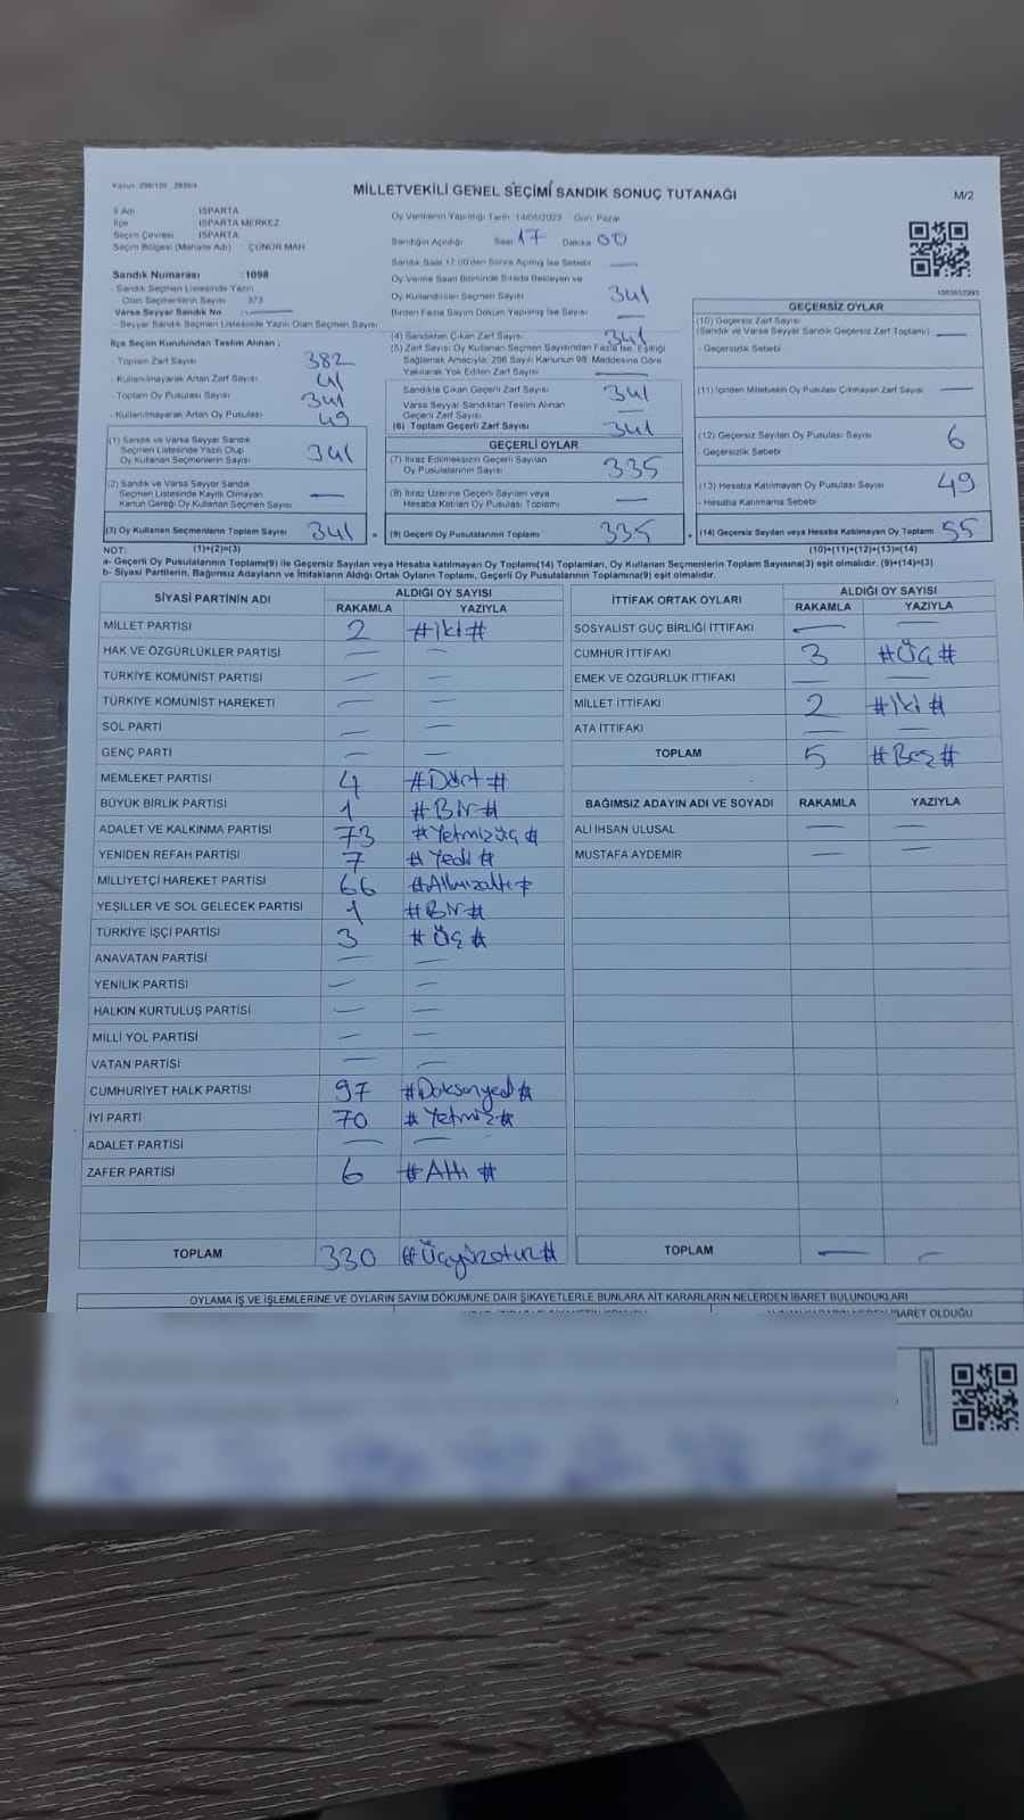 MİLLETVEKİLİ GENEL SEÇİMİ SANDIK SONUÇ TUTANAĞI
M/2
İl Adı ISPARTA
İlçe ISPARTA MERKEZ
Seçim Çevresi ISPARTA
Seçim Bölgesi (Mahalle Adı) ÇÜNÜR MAH
Sandık Numarası : 1098
Sandık Seçmen Listesinde Yazılı
Olan Seçmenlerin Sayısı 373
Varsa Seyyar Sandık No
- Seyyar Sandık Seçmen Listesinde Yazılı Olan Seçmen Sayısı
İlçe Seçim Kurulundan Teslim Alınan :
- Toplam Zarf Sayısı 382
- Kullanılmayarak Artan Zarf Sayısı 41
- Toplam Oy Pusulası Sayısı 341
- Kullanılmayarak Artan Oy Pusulası 49
(1) Sandık ve Varsa Seyyar Sandık
Seçmen Listesinde Yazılı Olup
Oy Kullanan Seçmenlerin Sayısı 341
(2) Sandık ve Varsa Seyyar Sandık
Seçmen Listesinde Kayıtlı Olmayan
Kanun Gereği Oy Kullanan Seçmen Sayısı —
(3) Oy Kullanan Seçmenlerin Toplam Sayısı 341
Oy Verme İşinin Yapıldığı Tarih 14/05/2023 Gün: Pazar
Sandığın Açıldığı Saat 17 Dakika 00
Sandık Saat 17:00'den Sonra Açılmış İse Sebebi —
Oy Verme Saati Bitiminde Sırada Bekleyen ve
Oy Kullandırılan Seçmen Sayısı 341
Birden Fazla Sayım Döküm Yapılmış İse Sayısı —
(4) Sandıktan Çıkan Zarf Sayısı 341
(5) Zarf Sayısı Oy Kullanan Seçmen Sayısından Fazla İse, Eşitliği
Sağlamak Amacıyla, 298 Sayılı Kanunun 98. Maddesine Göre
Yakılarak Yok Edilen Zarf Sayısı —
Sandıkta Çıkan Geçerli Zarf Sayısı 341
Varsa Seyyar Sandıktan Teslim Alınan
Geçerli Zarf Sayısı —
(6) Toplam Geçerli Zarf Sayısı 341
GEÇERLİ OYLAR
(7) İtiraz Edilmeksizin Geçerli Sayılan
Oy Pusulalarının Sayısı 335
(8) İtiraz Üzerine Geçerli Sayılan veya
Hesaba Katılan Oy Pusulası Toplamı —
(9) Geçerli Oy Pusulalarının Toplamı 335
GEÇERSİZ OYLAR
(10) Geçersiz Zarf Sayısı
(Sandık ve Varsa Seyyar Sandık Geçersiz Zarf Toplamı) —
- Geçersizlik Sebebi
(11) İçinden Milletvekili Oy Pusulası Çıkmayan Zarf Sayısı —
(12) Geçersiz Sayılan Oy Pusulası Sayısı 6
Geçersizlik Sebebi
(13) Hesaba Katılmayan Oy Pusulası Sayısı 49
- Hesaba Katılmama Sebebi
(14) Geçersiz Sayılan veya Hesaba Katılmayan Oy Toplamı 55
NOT: (1)+(2)=(3) (10)+(11)+(12)+(13)=(14)
a- Geçerli Oy Pusulalarının Toplamı(9) ile Geçersiz Sayılan veya Hesaba katılmayan Oy Toplamı(14) Toplamları, Oy Kullanan Seçmenlerin Toplam Sayısına(3) eşit olmalıdır. (9)+(14)=(3)
b- Siyasi Partilerin, Bağımsız Adayların ve İttifakların Aldığı Ortak Oyların Toplamı, Geçerli Oy Pusulalarının Toplamına(9) eşit olmalıdır.
SİYASİ PARTİNİN ADI ALDIĞI OY SAYISI
RAKAMLA YAZIYLA
MİLLET PARTİSİ 2 #iki#
HAK VE ÖZGÜRLÜKLER PARTİSİ — —
TÜRKİYE KOMÜNİST PARTİSİ — —
TÜRKİYE KOMÜNİST HAREKETİ — —
SOL PARTİ — —
GENÇ PARTİ — —
MEMLEKET PARTİSİ 4 #Dört#
BÜYÜK BİRLİK PARTİSİ 1 #Bir#
ADALET VE KALKINMA PARTİSİ 73 #Yetmişüç#
YENİDEN REFAH PARTİSİ 7 #Yedi#
MİLLİYETÇİ HAREKET PARTİSİ 66 #Altmışaltı#
YEŞİLLER VE SOL GELECEK PARTİSİ 1 #Bir#
TÜRKİYE İŞÇİ PARTİSİ 3 #Üç#
ANAVATAN PARTİSİ — —
YENİLİK PARTİSİ — —
HALKIN KURTULUŞ PARTİSİ — —
MİLLİ YOL PARTİSİ — —
VATAN PARTİSİ — —
CUMHURİYET HALK PARTİSİ 97 #Doksanyedi#
İYİ PARTİ 70 #Yetmiş#
ADALET PARTİSİ — —
ZAFER PARTİSİ 6 #Altı#
TOPLAM 330 #Üçyüzotuz#
İTTİFAK ORTAK OYLARI ALDIĞI OY SAYISI
RAKAMLA YAZIYLA
SOSYALİST GÜÇ BİRLİĞİ İTTİFAKI — —
CUMHUR İTTİFAKI 3 #Üç#
EMEK VE ÖZGÜRLÜK İTTİFAKI — —
MİLLET İTTİFAKI 2 #İki#
ATA İTTİFAKI — —
TOPLAM 5 #Beş#
BAĞIMSIZ ADAYIN ADI VE SOYADI RAKAMLA YAZIYLA
ALİ İHSAN ULUSAL — —
MUSTAFA AYDEMİR — —
TOPLAM — —
OYLAMA İŞ VE İŞLEMLERİNE VE OYLARIN SAYIM DÖKÜMÜNE DAİR ŞİKAYETLERLE BUNLARA AİT KARARLARIN NELERDEN İBARET BULUNDUKLARI
İBARET OLDUĞU